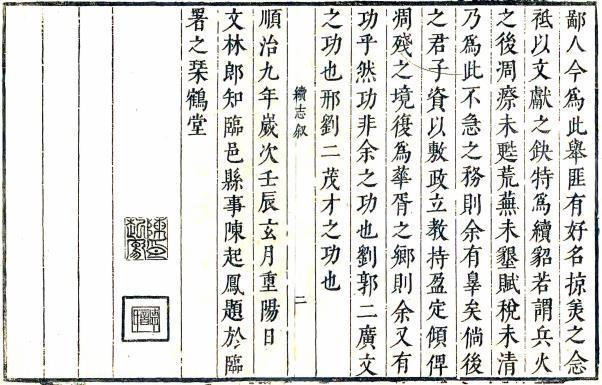 鄙人今為此舉匪有好名掠美之念
祗以文獻之鈌特為續貂若謂兵火
之後凋瘵未甦荒蕪未墾賦稅未清
乃為此不急之務則余有辠矣倘後
之君子資以敷政立教持盈定傾俾
凋殘之境復為華胥之鄉則余又有
功乎然功非余之功也劉郭二廣文
之功也邢劉二茂才之功也
續志叙 二
順治九年嵗次壬辰玄月重陽日
文林郎知臨邑縣事陳起鳳題於臨
署之琹鶴堂
陳印起鳳